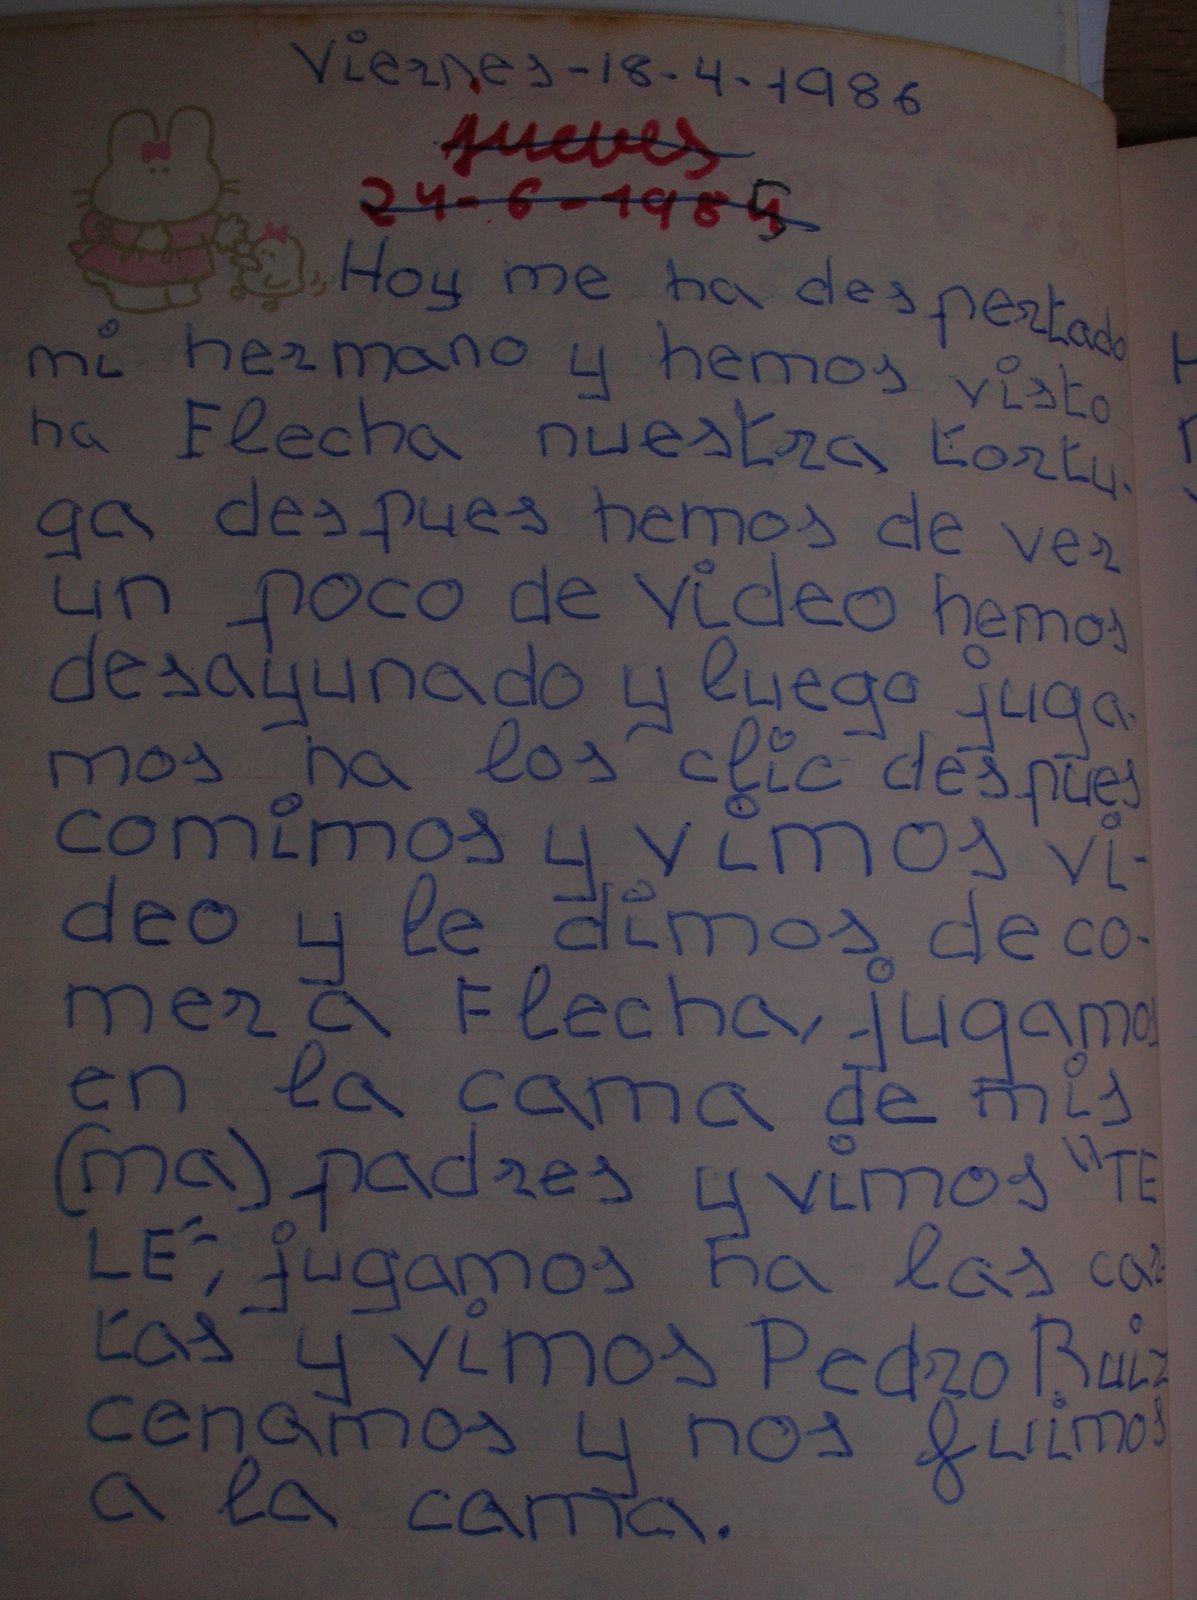 Viernes-18-4-1986
jueves
24-6-1985
Hoy me ha despertado
mi hermano y hemos visto
ha Flecha nuestra tortu-
ga despues hemos de ver
un poco de video hemos
desayunado y luego juga-
mos ha los clic despues
comimos y vimos vi-
deo y le dimos de co-
mer a Flecha, jugamos
en la cama de mis
(ma) padres y vimos "TE
LE", jugamos ha las car-
tas y vimos Pedro Ruiz
cenamos y nos fuimos
a la cama.